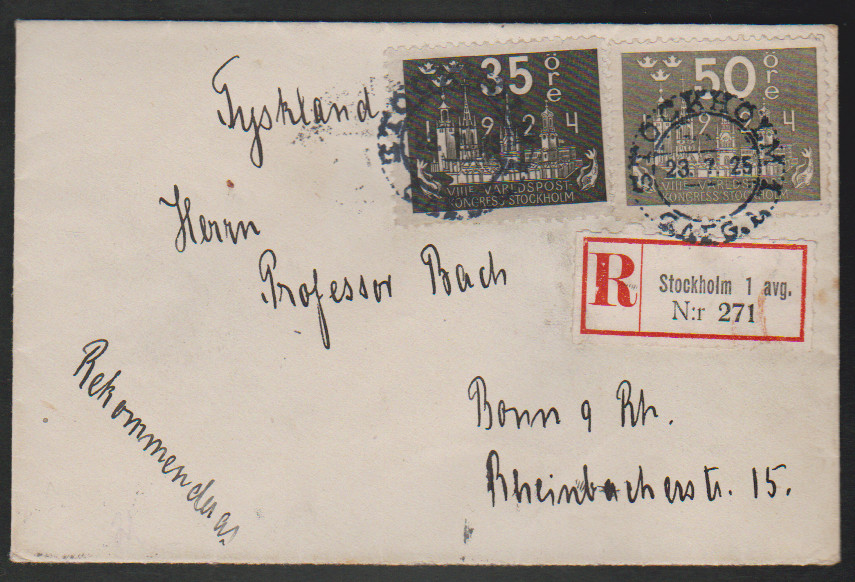 Tyskland
35 öre
1924
VIII:E VÄRLDSPOST-
KONGRESS STOCKHOLM
50 öre
1924
VIII:E VÄRLDSPOST-
KONGRESS STOCKHOLM
STOCKHOLM 1
23 7 25
AVG.
Herrn
Professor Bach
R
Stockholm 1 avg.
N:r 271
Rekommenderas
Bonn a Rh.
Rheinbacherstr. 15.